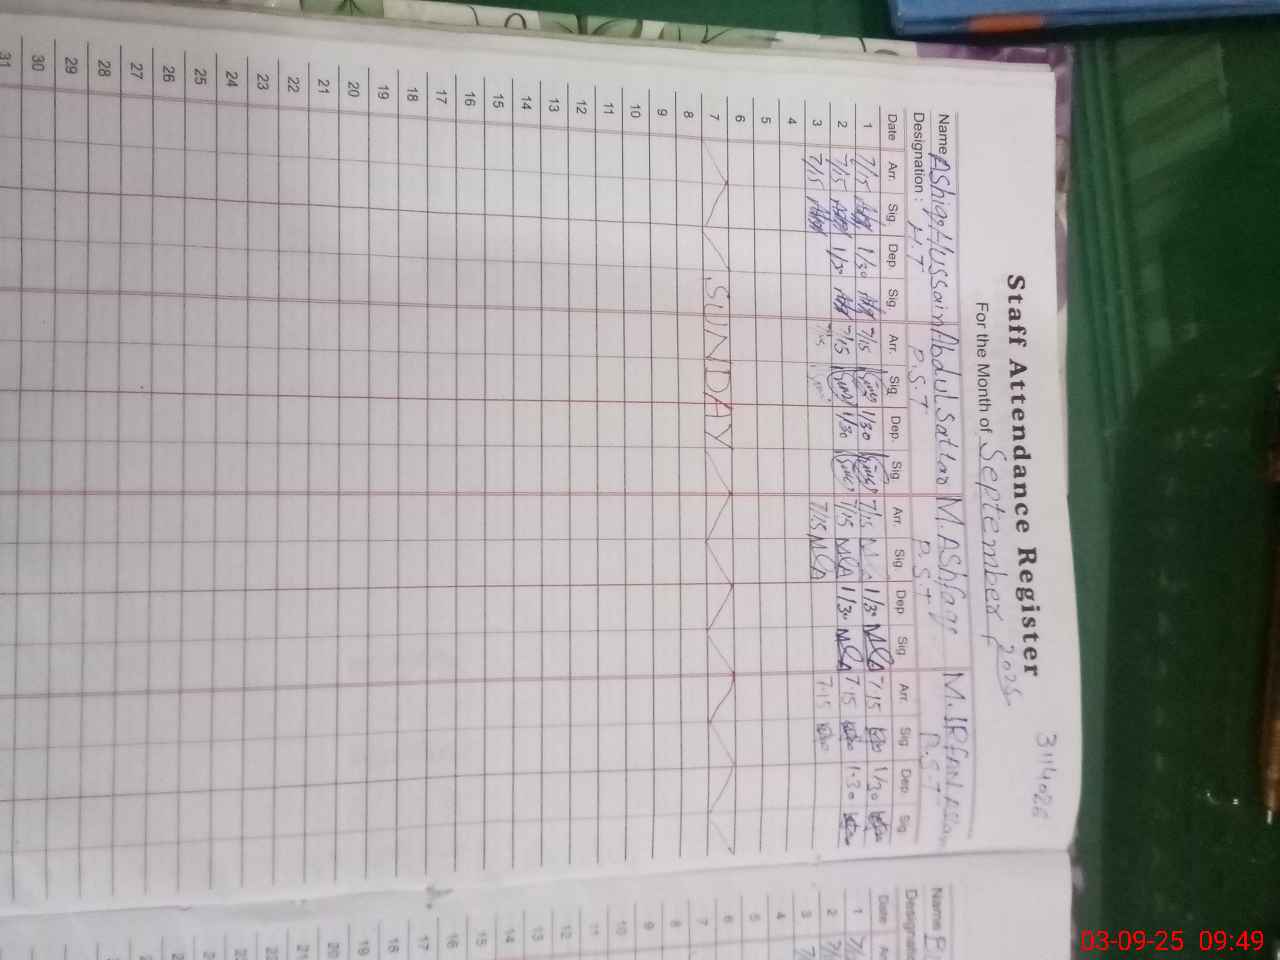 3114026
Staff Attendance Register
For the Month of September 2025
Name Ashiq Hussain Abdul Sattar M. Ashfaq M. IRfan
Designation : H.T P.S.T P.S.T P.S.T
Date Arr. Sig. Dep. Sig. Arr. Sig. Dep. Sig. Arr. Sig. Dep. Sig. Arr. Sig. Dep. Sig.
1 7/15 1/30 7/15 1/30 7/15 1/30 7.15 1/30
2 7/15 1/30 7/15 1/30 7/15 1/30 7.15 1.30
3 7/15 7/15 7/15 7.15
4
5
6
7 SUNDAY
8
9
10
11
12
13
14
15
16
17
18
19
20
21
22
23
24
25
26
27
28
29
30
31
Name
Designat
Date
1
2
3
4
5
6
7
8
9
10
11
12
13
14
15
16
17
18
19
20
21
22
03-09-25 09:49